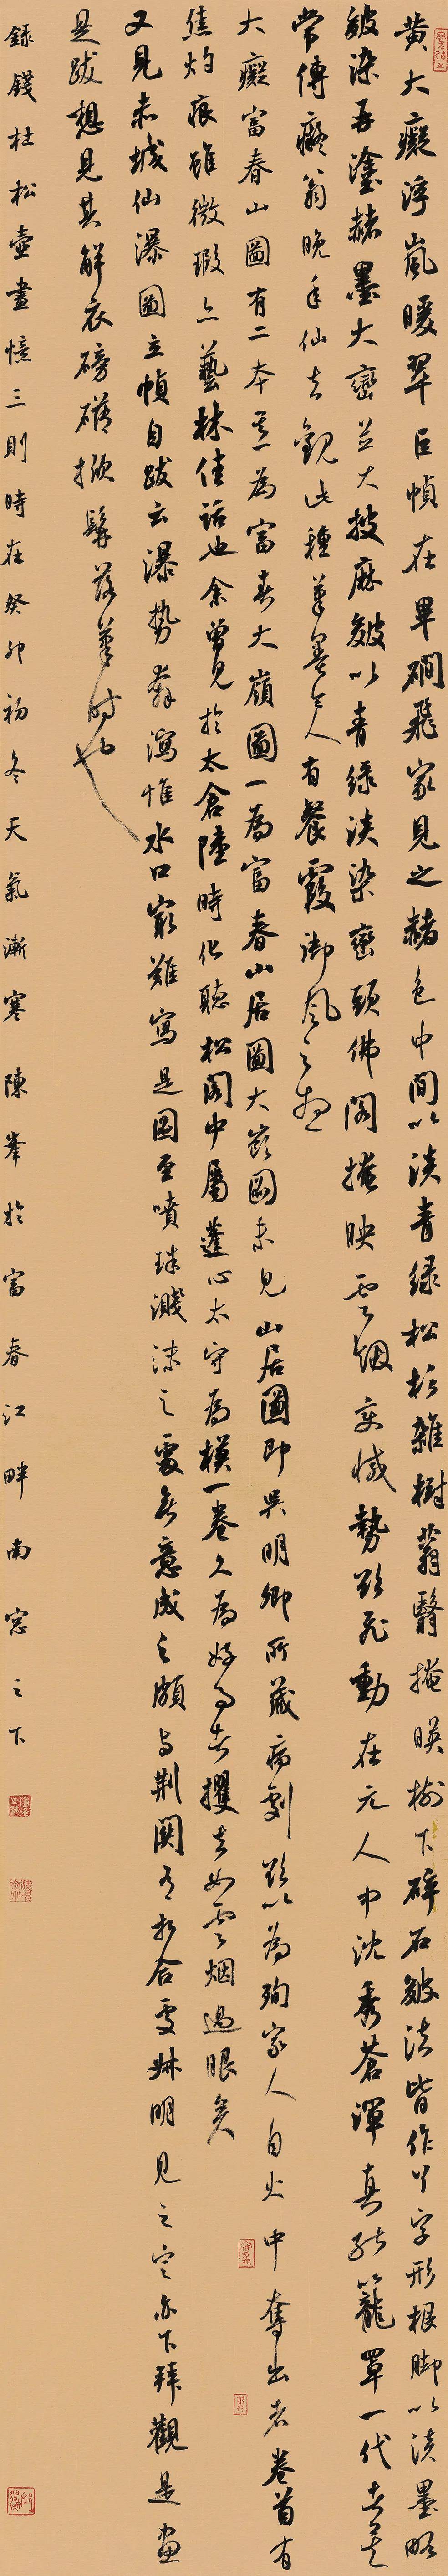 黄大癡浮嵐暖翠巨幀在畢磵飛家見之赭色中間以淡青緑松杉雜樹蓊翳掩暎樹下碎石皴法皆作丫字形根脚以淡墨略
皴染再塗赭墨大巒並大披麻皴以青緑淡染巒頭佛閣掩映雲烟変滅勢欲飛動在元人中沈秀蒼渾真能籠罩一代者是
常傳癡翁晚年仙去觀此種筆墨令人有餐霞御風之想
大癡富春山圖有二本焉一為富春大嶺圖一為富春山居圖大嶺圖未見山居圖即吳明卿所藏病劇欲以為殉家人自火中奪出者卷首有
焦灼痕雖微瑕亦藝林佳話也余曾見於太倉陸時化聽松閣中屬蓬心太守為模一卷久為好事者攫去如雲烟過眼矣
又見赤城仙瀑圖立幀自跋云瀑勢奔瀉惟水口最難寫是圖至噴珠濺沫之處無意成之頗与荆関有契合處叔明見之定亦下拜觀是畫
是跋想見其解衣磅礴掀髯落筆時也
録錢杜松壺畫憶三則時在癸卯初冬天氣漸寒陳峯於富春江畔南窓之下